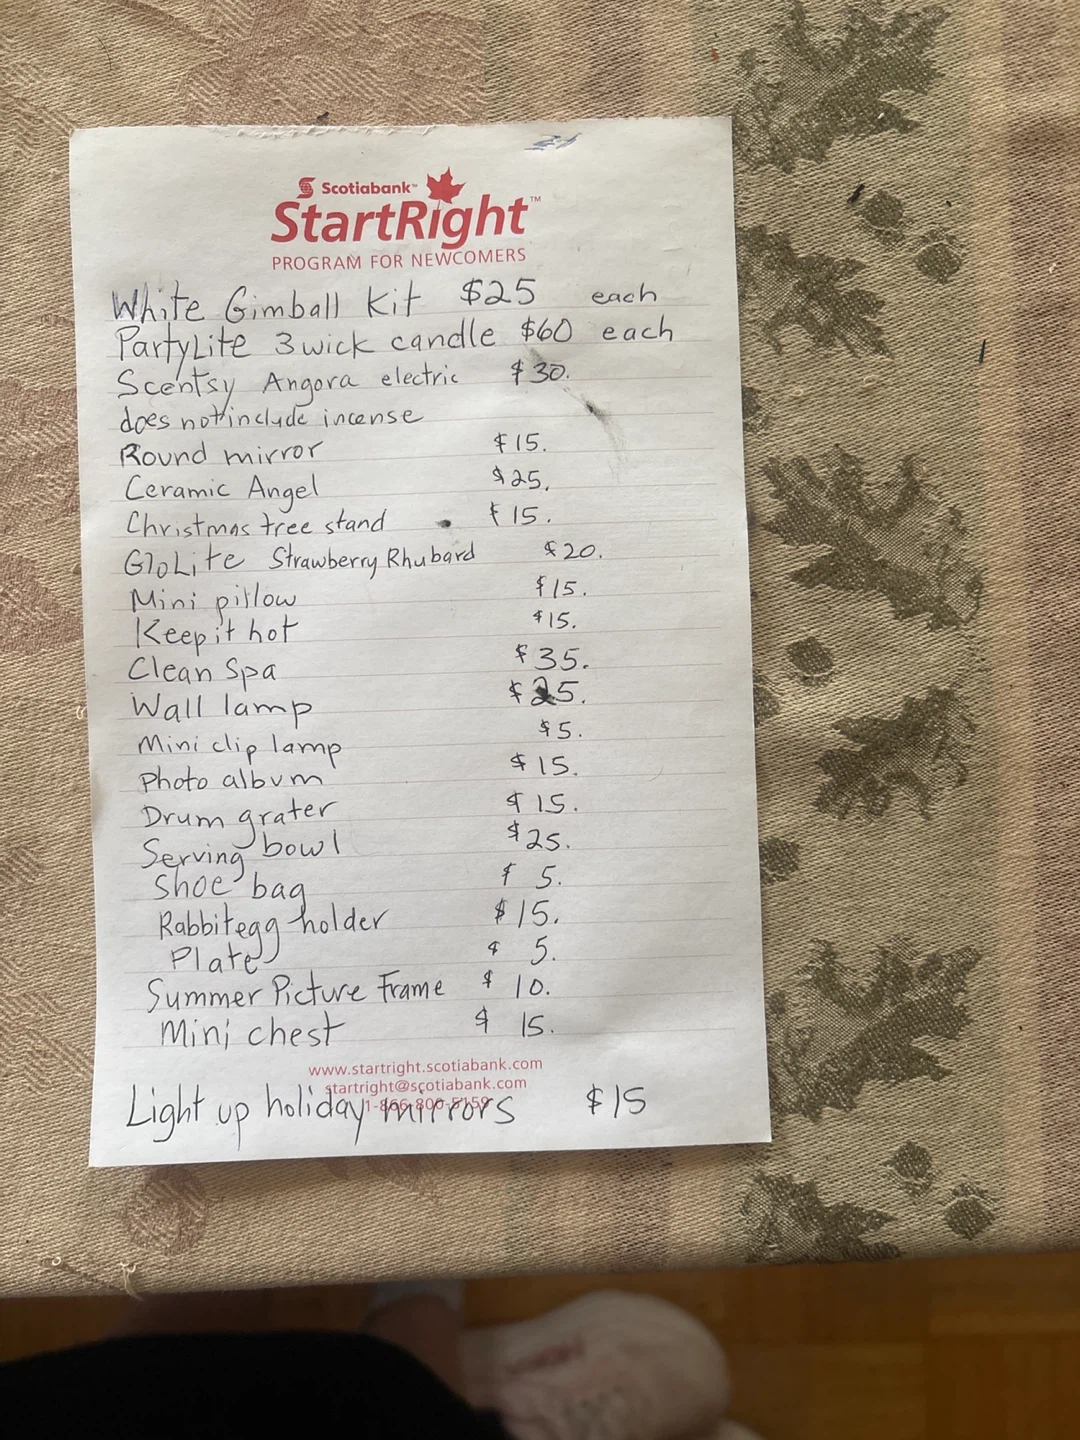 Scotiabank™
StartRight™
PROGRAM FOR NEWCOMERS
White Gimball Kit $25 each
PartyLite 3 wick candle $60 each
Scentsy Angora electric $30.
does not include incense
Round mirror $15.
Ceramic Angel $25.
Christmas tree stand $15.
GloLite Strawberry Rhubard $20.
Mini pillow $15.
Keep it hot $15.
Clean Spa $35.
Wall lamp $25.
Mini clip lamp $5.
Photo album $15.
Drum grater $15.
Serving bowl $25.
Shoe bag $5.
Rabbit egg holder $15.
Plate $5.
Summer Picture Frame $10.
Mini chest $15.
www.startright.scotiabank.com
startright@scotiabank.com
1-866-800-5159
Light up holiday mirrors $15